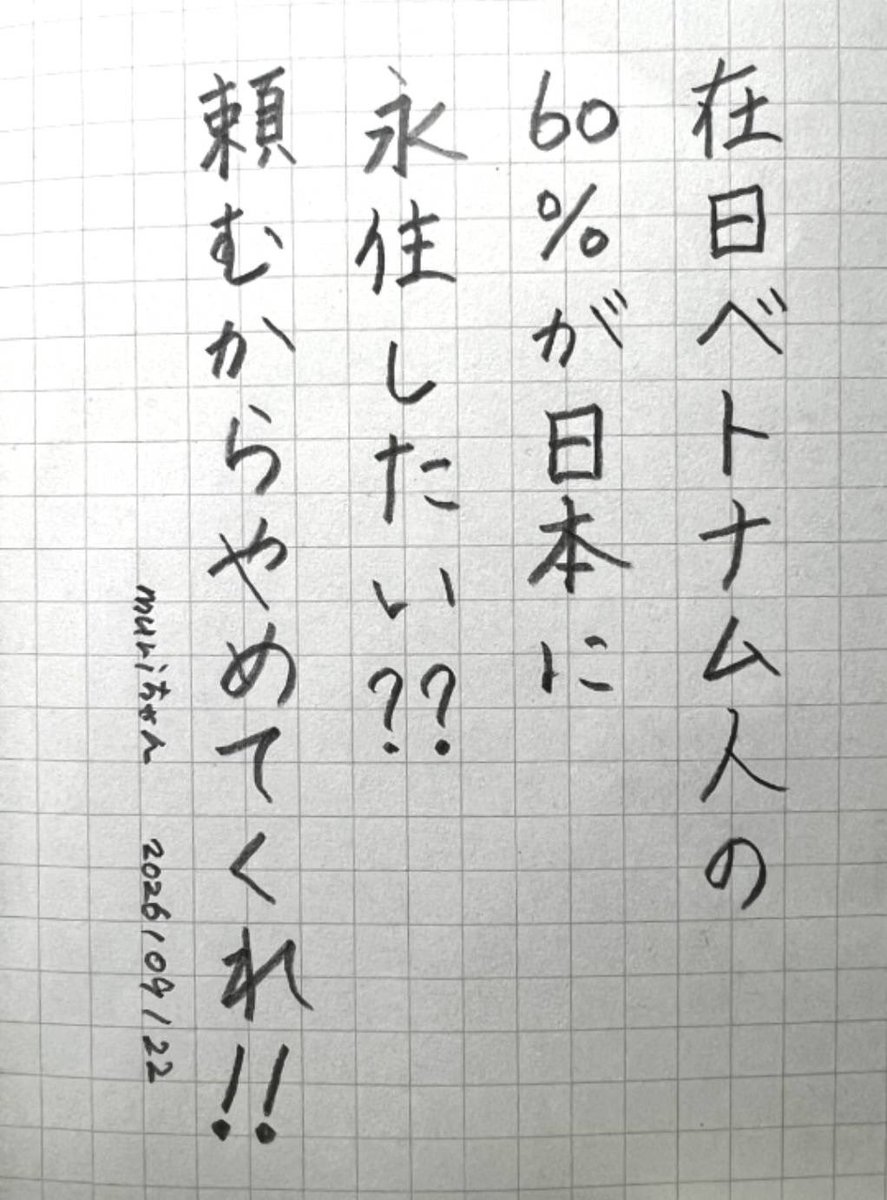 在日ベトナム人の
60%が日本に
永住したい??
頼むからやめてくれ!!
muriちゃん 2026/04/22